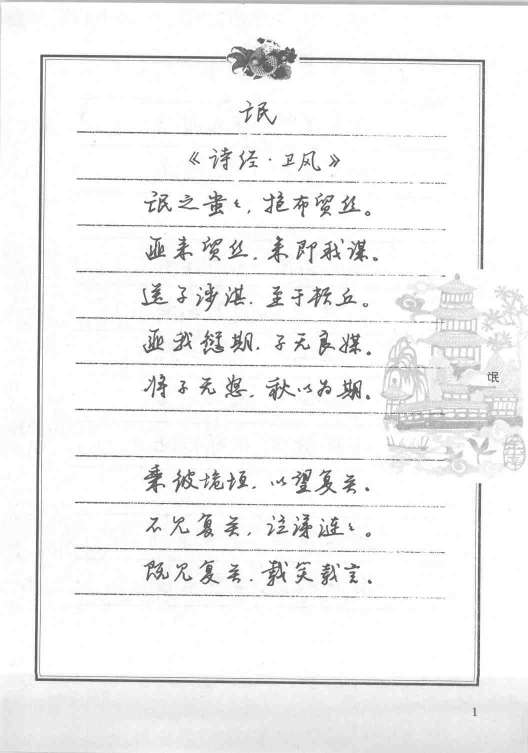 氓
《诗经·卫风》
氓之蚩々，抱布贸丝。
匪来贸丝，来即我谋。
送子涉淇，至于顿丘。
匪我愆期，子无良媒。
将子无怒，秋以为期。
氓
乘彼垝垣，以望复关。
不见复关，泣涕涟々。
既见复关，载笑载言。
1